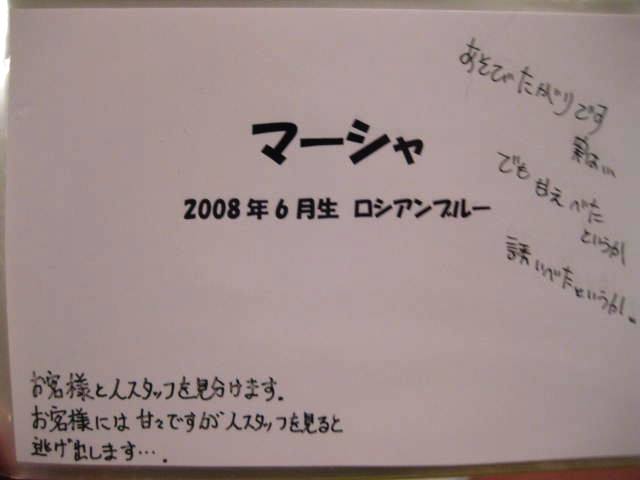 マーシャ
2008年6月生 ロシアンブルー
あそびたがりです
実は…
でも甘えべた
というか
誘いべたというか。
お客様と人スタッフを見分けます.
お客様には甘々ですが人スタッフを見ると
逃げ出します….